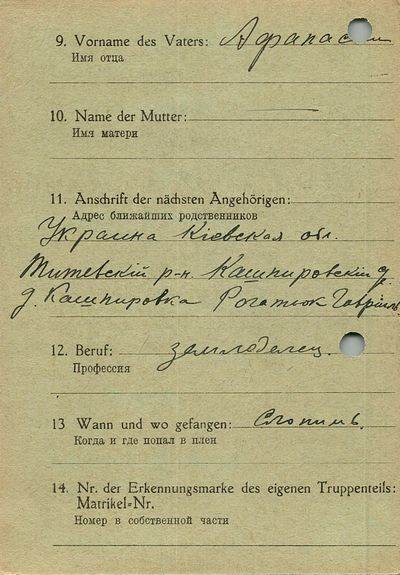 9. Vorname des Vaters: Афанасий
Имя отца
10. Name der Mutter: —
Имя матери
11. Anschrift der nächsten Angehörigen:
Адрес ближайших родственников
Украина Кіевская обл.
р-н. Кашпировскій
д. Кашпировка Рогатюк Гавріил
12. Beruf: земледелец.
Профессия
13 Wann und wo gefangen: Слонимъ.
Когда и где попал в плен
14. Nr. der Erkennungsmarke des eigenen Truppenteils:
Matrikel=Nr.
Номер в собственной части